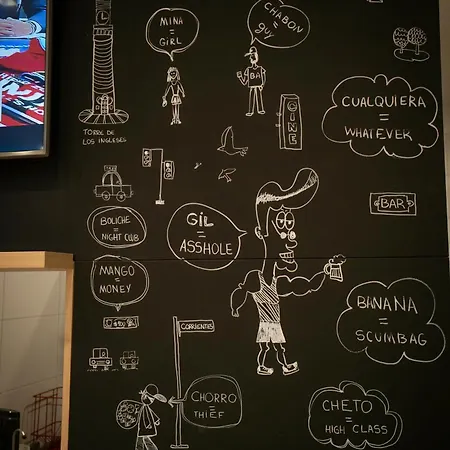 MINA
=
GIRL
CHABON
=
guy
BA
TORRE DE
LOS INGLESES
CINE
CUALQUIERA
=
WHATEVER
TAXI
BAR
BOLICHE
=
NIGHT CLUB
GIL
=
ASSHOLE
MANGO
=
MONEY
BANANA
=
SCUMBAG
CORRIENTES
CHORRO
=
THIEF
CHETO
=
HIGH CLASS